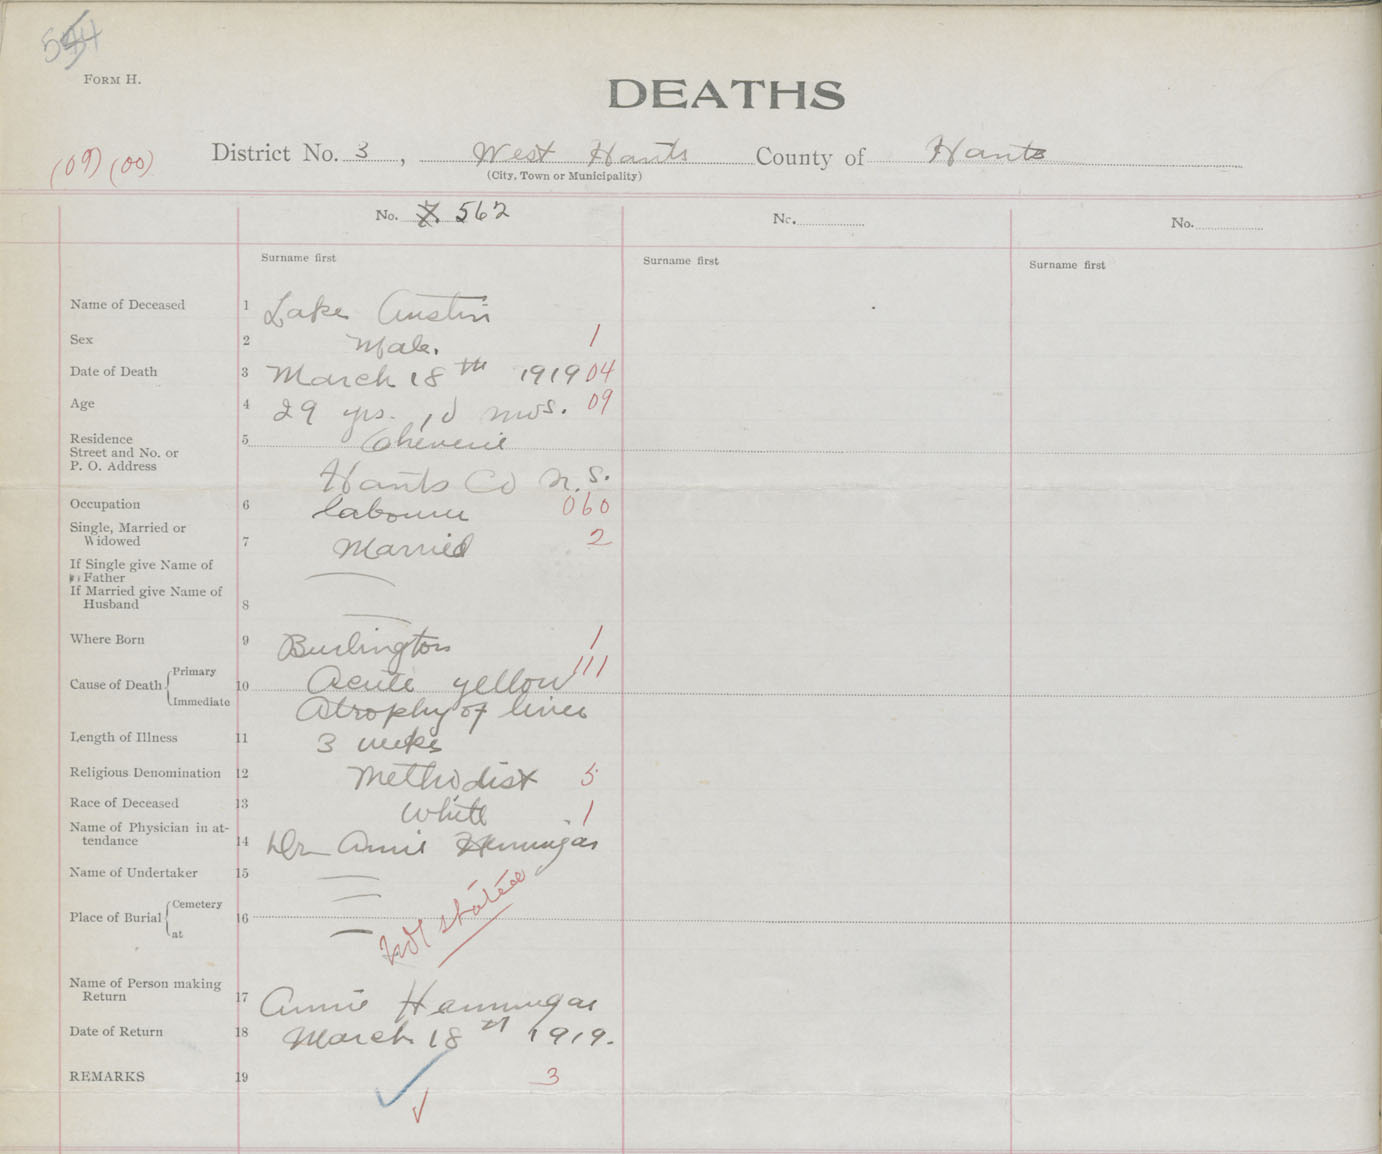 544
FORM H.
DEATHS
(09) (00)
District No. 3, West Hants County of Hants
(City, Town or Municipality)
No. 7 562 No. No.
Surname first Surname first Surname first
Name of Deceased 1 Lake Austin
Sex 2 Male. 1
Date of Death 3 March 18th 1919 04
Age 4 29 yrs. 10 mos. 09
Residence 5 Cheverie
Street and No. or
P. O. Address
Hants Co N.S.
Occupation 6 labourer 060
Single, Married or
Widowed 7 Married 2
If Single give Name of
Father
If Married give Name of
Husband 8
Where Born 9 Burlington 1
Cause of Death Primary 10 Acute yellow 111
Immediate Atrophy of liver
Length of Illness 11 3 weeks
Religious Denomination 12 Methodist 5
Race of Deceased 13 White 1
Name of Physician in at-
tendance 14 Dr Annie Hennigar
Name of Undertaker 15
Place of Burial Cemetery 16 Not stated
at
Name of Person making
Return 17 Annie Hennigar
Date of Return 18 March 18 1919.
REMARKS 19 3